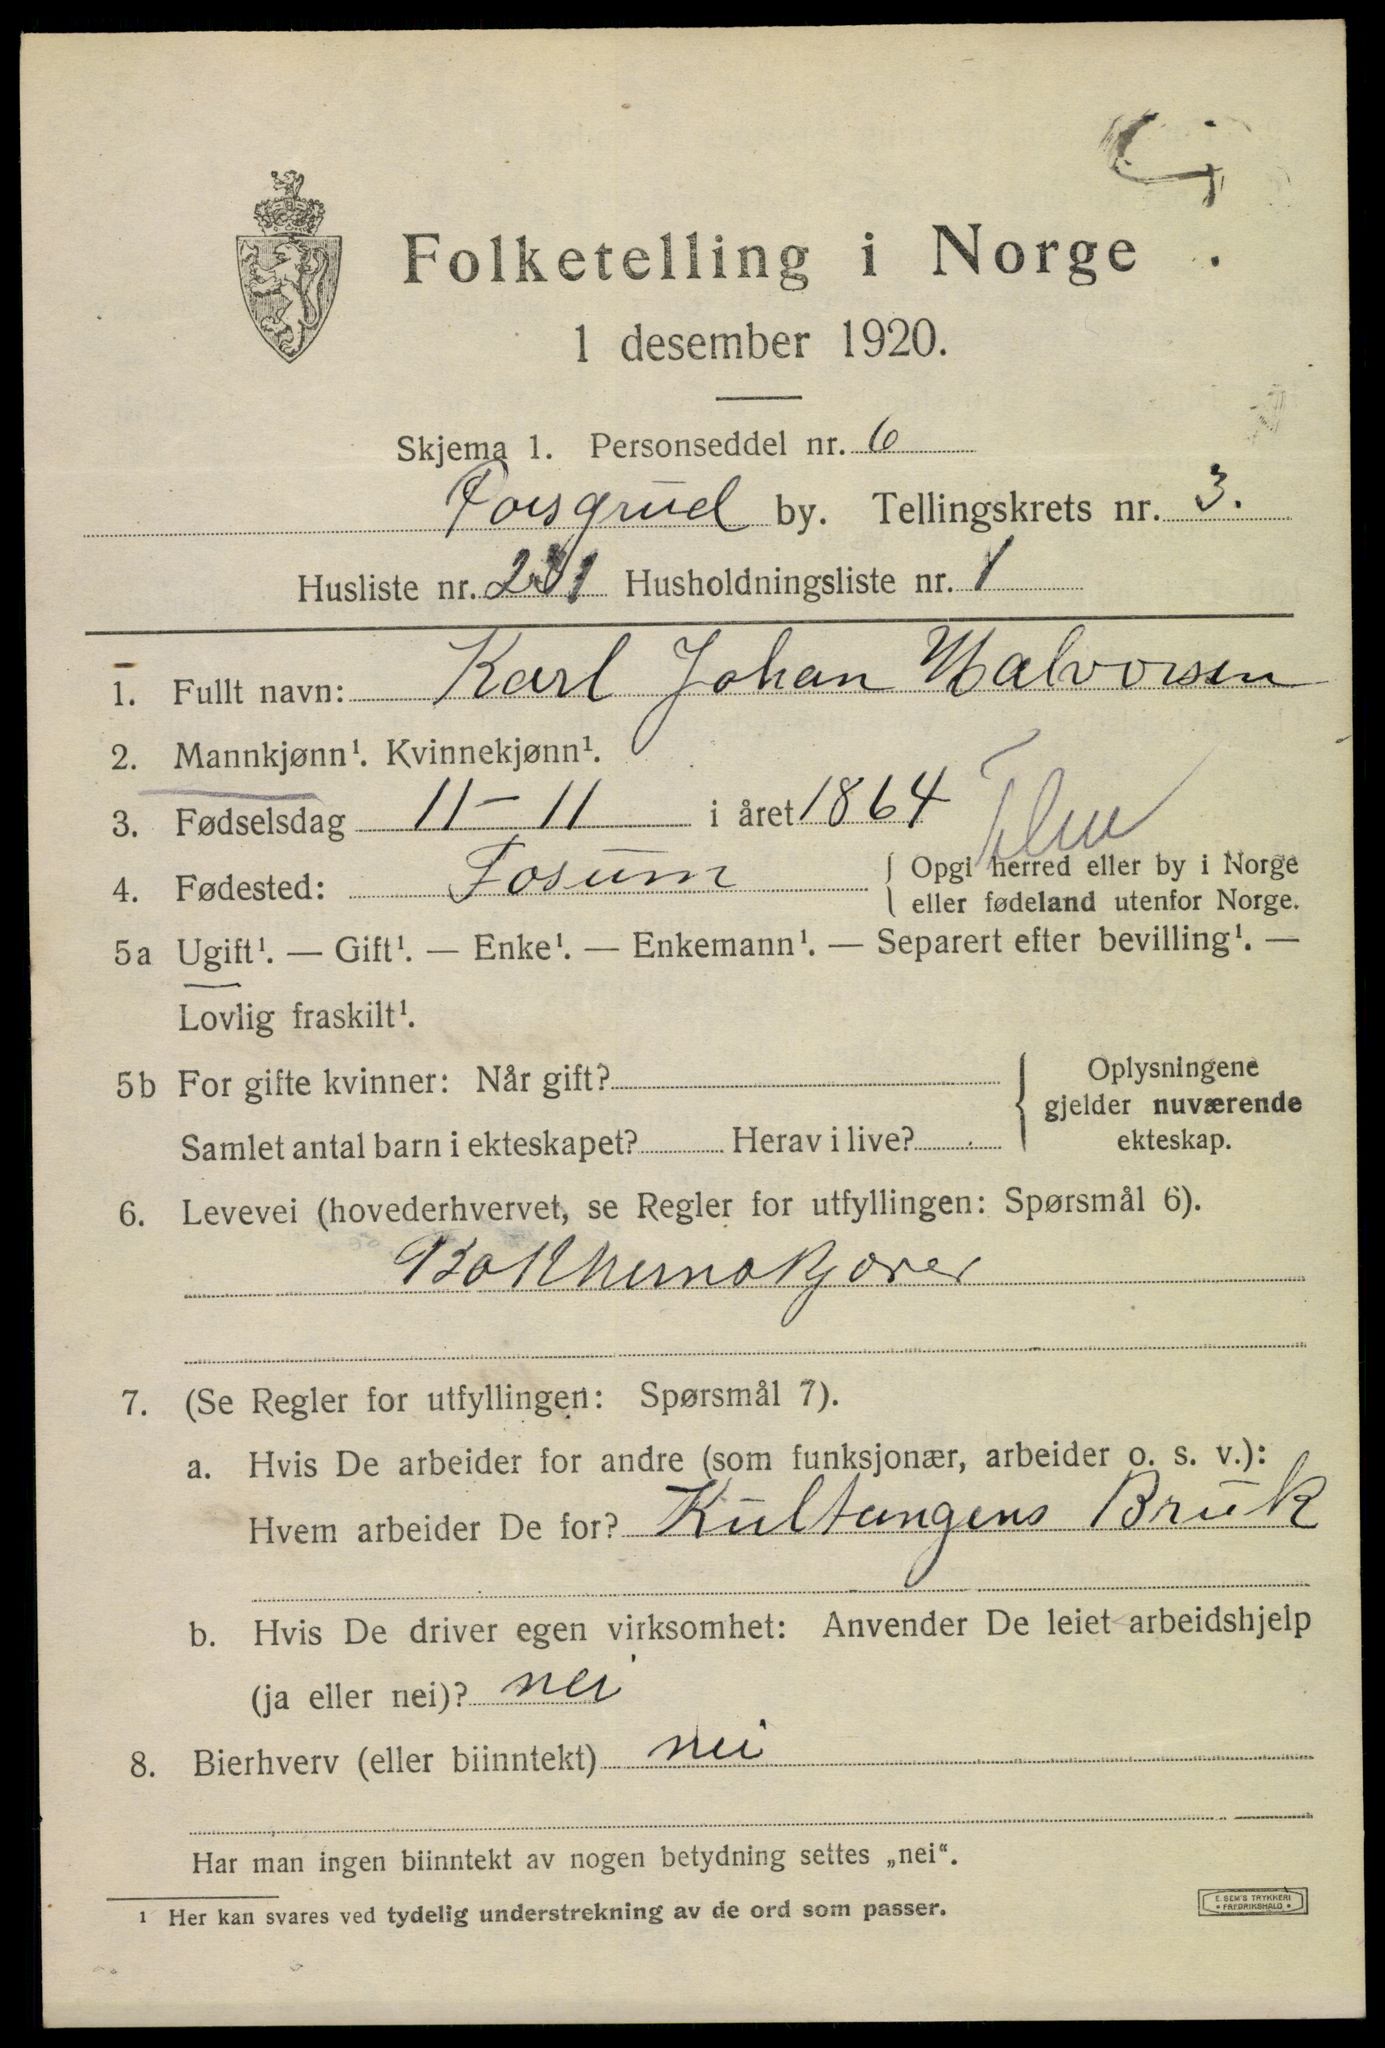 Folketelling i Norge
1 desember 1920.
Skjema 1. Personseddel nr. 6
Porsgrund by. Tellingskrets nr. 3.
Husliste nr. 231 Husholdningsliste nr. 1
1. Fullt navn: Karl Johan Halvorsen
2. Mannkjønn¹. Kvinnekjønn¹.
3. Fødselsdag 11-11 i året 1864
4. Fødested: Fosum { Opgi herred eller by i Norge
eller fødeland utenfor Norge.
5a Ugift¹. — Gift¹. — Enke¹. — Enkemann¹. — Separert efter bevilling¹. —
Lovlig fraskilt¹.
5b For gifte kvinner: Når gift?
Samlet antal barn i ekteskapet? Herav i live?
Oplysningene
gjelder nuværende
ekteskap.
6. Levevei (hovederhvervet, se Regler for utfyllingen: Spørsmål 6).
7. (Se Regler for utfyllingen: Spørsmål 7).
a. Hvis De arbeider for andre (som funksjonær, arbeider o. s. v.):
Hvem arbeider De for? Kultangens Bruk
b. Hvis De driver egen virksomhet: Anvender De leiet arbeidshjelp
(ja eller nei)? nei
8. Bierhverv (eller biinntekt) nei
Har man ingen biinntekt av nogen betydning settes „nei".
¹ Her kan svares ved tydelig understrekning av de ord som passer.
E. SEM'S TRYKKERI
FREDRIKSHALD